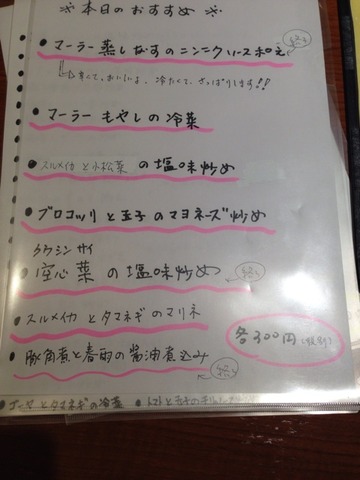 ※本日のおすすめ※
● マーラー蒸しなすのニンニクソース和え
冷たくて、さっぱりします!!
● マーラーもやしの冷菜
● スルメイカと小松菜の塩味炒め
● ブロッコリと玉子のマヨネーズ炒め
クウシンサイ
● 空心菜の塩味炒め
● スルメイカとタマネギのマリネ
各300円(税別)
● 豚角煮と春雨の醤油煮込み
● ゴーヤとタマネギの冷菜 ● トマトと玉子の